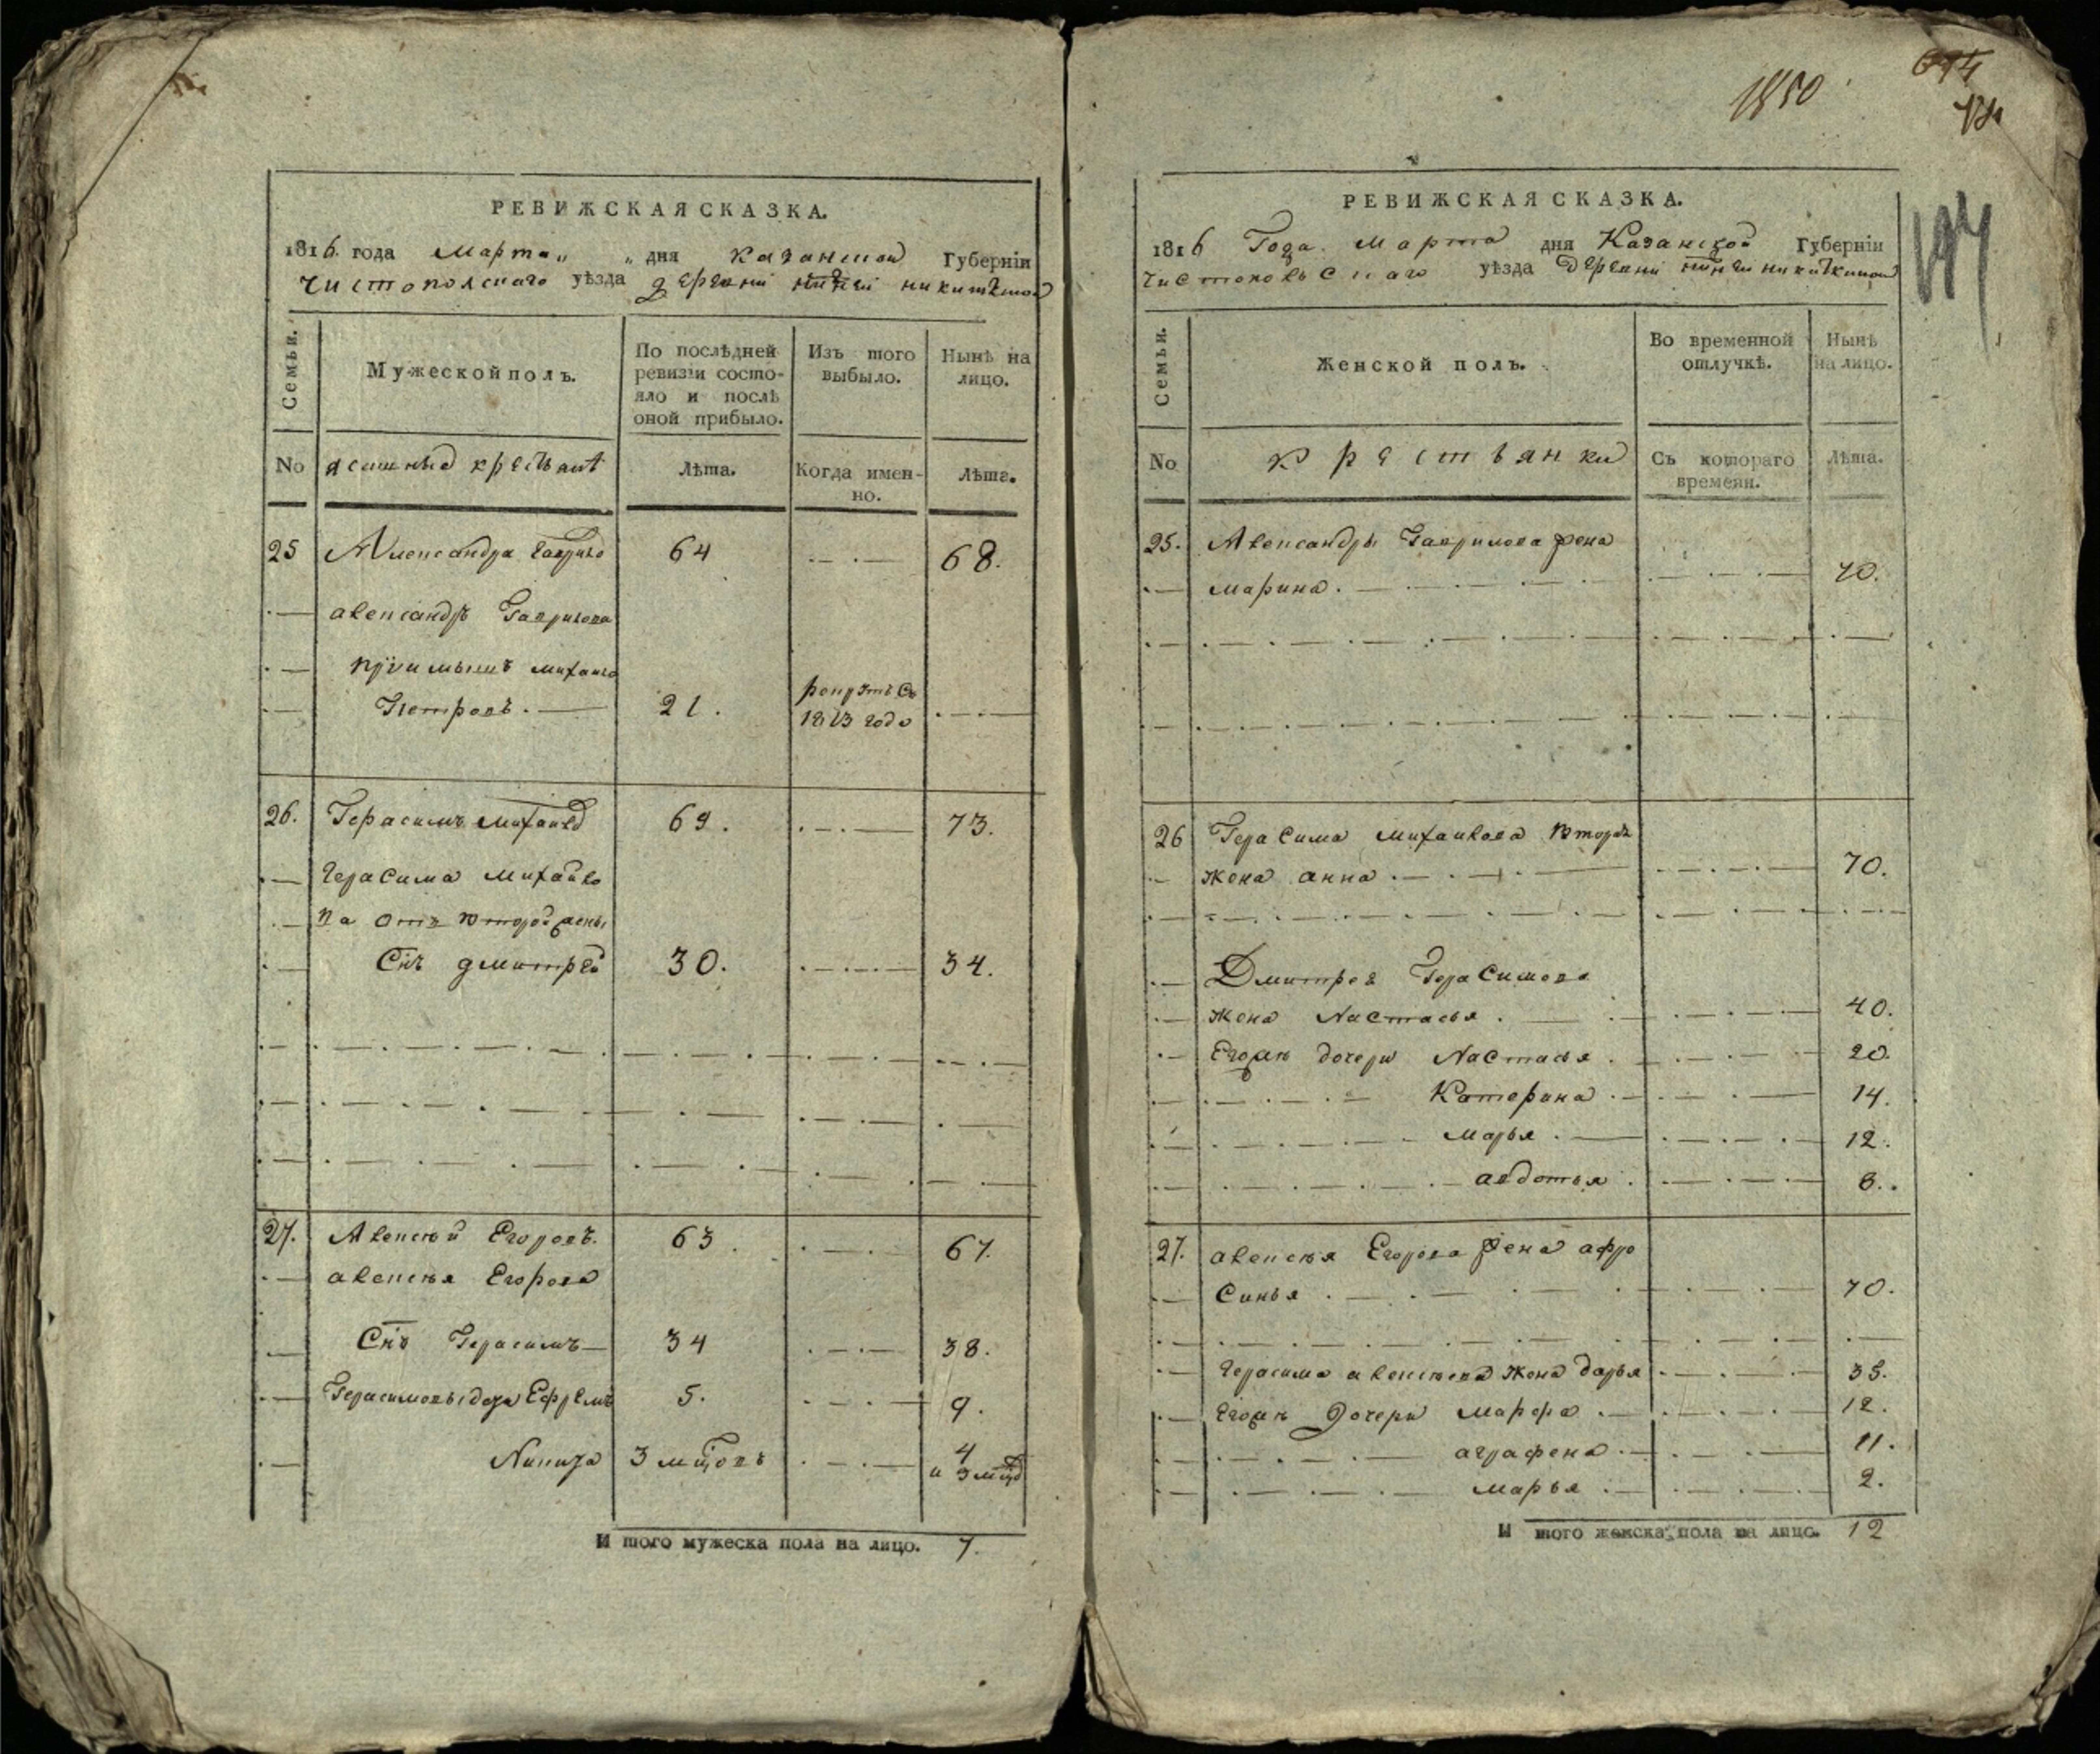 РЕВИЖСКАЯ СКАЗКА.
1816 года Марта „ „ дня казанской Губернiи
чистопольскаго уѣзда деревни нижней никиткиной
Семьи.
Мужеской полъ.
По послѣдней ревизiи состо-
яло и послѣ
оной прибыло.
Изъ того
выбыло.
Нынѣ на
лицо.
No
ясашныя крестьяне
Лѣта.
Когда имен-
но.
Лѣта.
25 Александра Гаврило 64 68.
александръ Гаврилова
прiимышъ михаило
Петровъ. 21. рекрутъ съ
1813 года
26. Герасимъ михайлов 69. 73.
Герасима михайло
ва отъ второй жены
Снъ дмитрей 30. 34.
27. Алексѣй Егоровъ. 63. 67.
алексѣя Егорова
Снъ Герасимъ 34 38.
Герасимовы дети Ефремъ 5. 9.
Никита 3 мцовъ 4
и 3 мцо
И того мужеска пола на лицо. 7.
1850
674
197
РЕВИЖСКАЯ СКАЗКА.
1816 Года. марта дня Казанской Губернiи
чистопольскаго уѣзда деревни нижней никиткиной
Семьи.
Женской полъ.
Во временной
отлучкѣ.
Нынѣ
на лицо.
No
крестьянки
Съ котораго
времени.
Лѣта.
25. Александры Гаврилова жена
марина. 70.
26 Герасима михайлова вторая
жена анна. 70.
Дмитрея Герасимова
жена Настасья. 40.
Егожъ дочери Настасья. 20.
Катерина. 14.
марья. 12.
авдотья. 8.
27. алексѣя Егорова жена афро
Синья. 70.
Герасима алексѣева жена дарья 35.
Егожъ дочери марфа. 12.
аграфена. 11.
марья. 2.
И того женска пола на лицо. 12